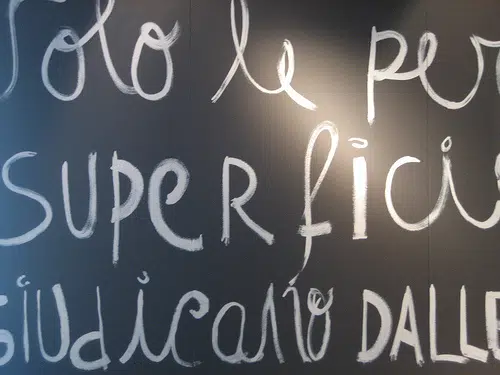 Solo le per
SUPERfici
GIUdicano DALLE